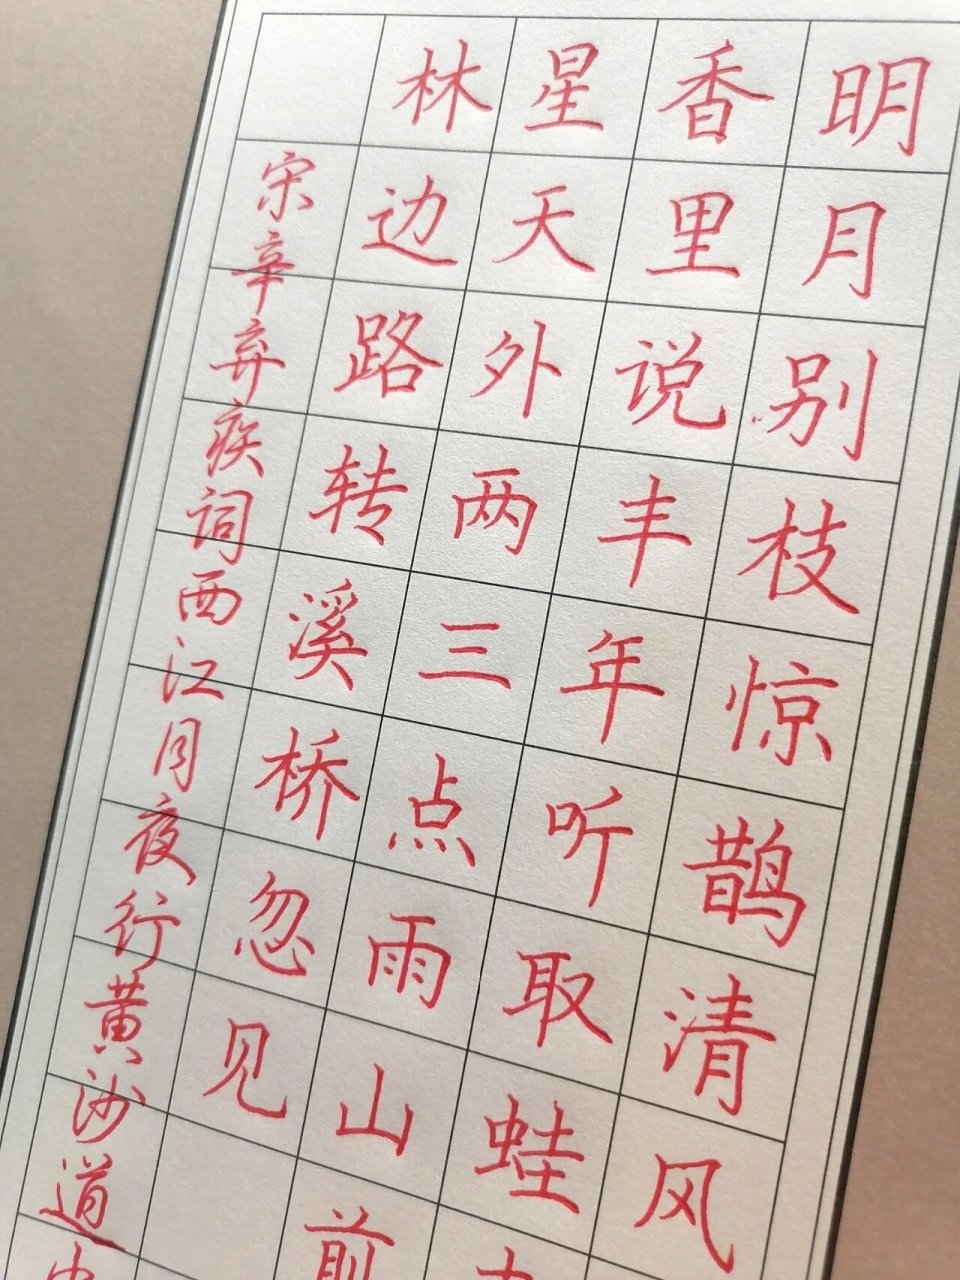 明月别枝惊鹊清风
香里说丰年听取蛙
星天外两三点雨山前
林边路转溪桥忽见
宋辛弃疾词西江月夜行黄沙道中